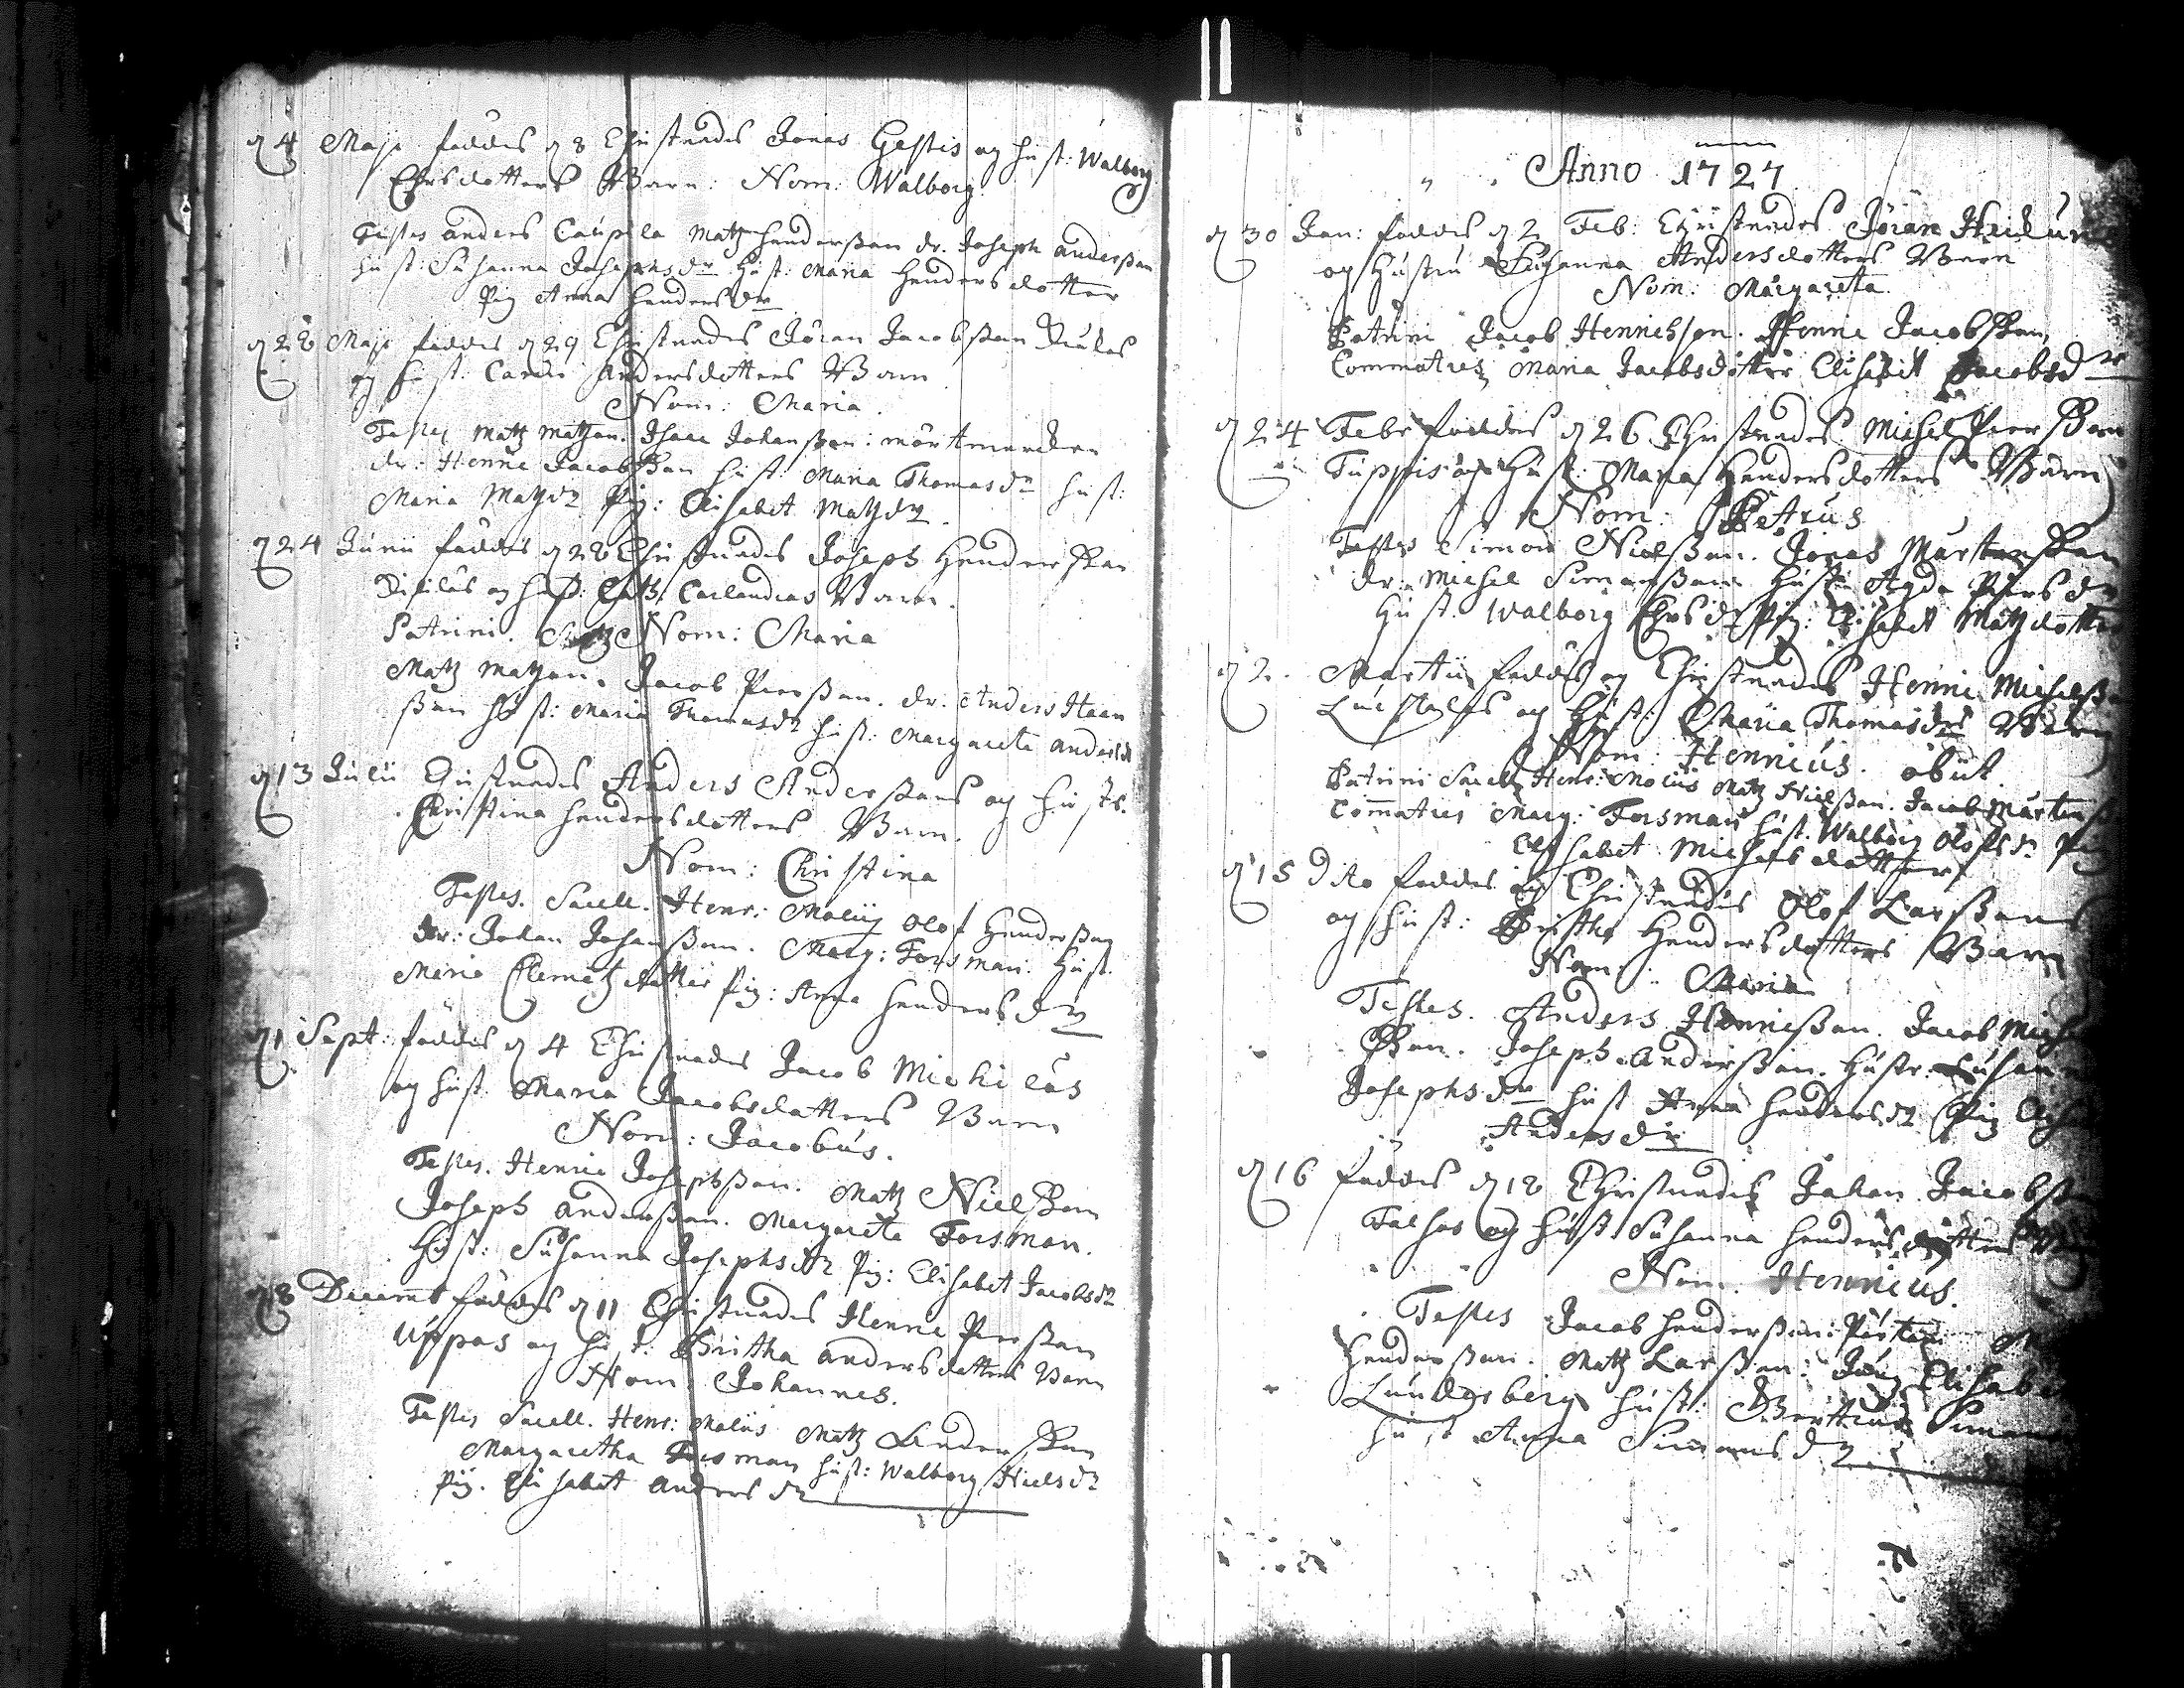 d 4 Maji föddes d 8 Christnades Jonas Gestis og hust: Walborg
Ersdotters Barn: Nom: Walborg
Testes anders Caupila Matz hendersson dr. Joseph andersson
hust: Susanna Josephsdr hust: Maria hendersdotter
Pig Anna hendersdr
d 28 Maji föddes d 29 Christnades Jöran Jacobsson
og hust: Carin andersdotters Barn
Nom: Maria.
Testes Matz Matzson. Isaac Johansson:
dr: Henric Jacobsson hust: Maria Thomasdr hust:
Maria Matzdr Pig: Elisabet Matzdr.
d 24 Junii föddes d 28 Christnades Joseph Hendersson
og hust: Cath: Carlandras Barn.
Patrini. Nom: Maria
Matz Matzson. Jacob Persson. dr. Anders Haan
sson hust: Maria Thomasdr hust: Margareta andersdr
d 13 Julii Christnades Anders Anderssons og hustr.
Christina hendersdotters Barn.
Nom: Christina
Testes. Sacell. Henr: Molijs Olof Hendersson
dr: Johan Johansson. Marg: Forsman. Hust.
Maria Clemetzdotter Pig: Anna hendersdr
d 1 Sept: föddes d 4 Christnades Jacob Michilas
og hust. Maria Jacobsdotters Barn
Nom: Jacobus.
Testes. Henric Josephsson. Matz Nielsson
Joseph andersson. Margareta Forsman.
Hust: Susanna Josephsdr Pig: Elisabet Jacobsdr
d 8 Decemb föddes d 11 Christnades Henric Persson
Uppas og hust: Britha andersdotters Barn
Nom: Johannes.
Testes Sacell. Henr: Molius Matz Andersson
Margaretha Forsman hust: Walborg Nielsdr
Pig. Elisabet andersdr
Anno 1727
d 30 Jan: föddes d 2 Feb: Christnades Jöran
og Hustru Susanna Andersdotters Barn
Nom: Margareta
Patrini Jacob Henrichson. Henric Jacobsson,
Commatres Maria Jacobsdotter Elisabet Jacobsdr
d 24 Febr föddes d 26 Christnades Michel Persson
Tuppis og Hust: Maria Hendersdotters Barn
Nom: Petrus
Testes Simon Nielsson. Jonas Mårtensson
dr. Michel Simonsson hust: Agda Persdr
Hust. Walborg Ersdr Pig: Elisabet Matzdotter
d 2. Martii föddes og Christnades Henric Michelsson
og Hust: Maria Thomasdrs Barn
Nom: Henricus. obiit
Patrini Sacell. Henr: Molius Matz Nielsson. Jacob Mårten
Commatres Marg: Forsman hust. Walborg Olofsdr Pig
Elisabet Michelsdotter
d 15 Dito föddes og Christnades Olof Larssons
og hust: Britha Hendersdotters Barn
Nom: Maria
Testes. Anders Henricsson. Jacob Mich
sson. Joseph andersson. Hustr: Susan
Josephsdr hust Anna hendersdr Pig
Andersdr
d 16 föddes d 18 Christnades Johan Jacobs
og hust Susanna hendersdotters
Nom. Henricus.
Testes Jacob hendersson:
Hendersson. Matz Larsson: Elisabe
Lundersberg hust: Simon
hust Anna Simonsdr